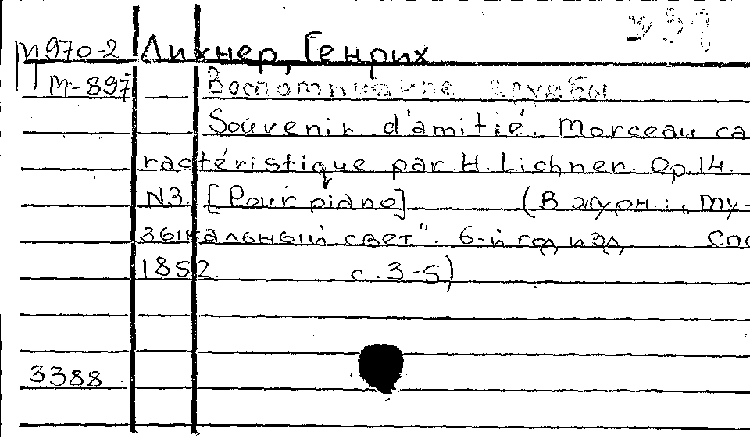 М970-2 Лихнер, Генрих
М-897 Воспоминание дружбы
Souvenir d'amitié. Morceau ca
ractéristique par H. Lichner. Op. 14.
N3. [Pour piano] (В журн.: „Му-
зыкальный свет". 6-й год изд. СПб
1852 с. 3-5)
3388